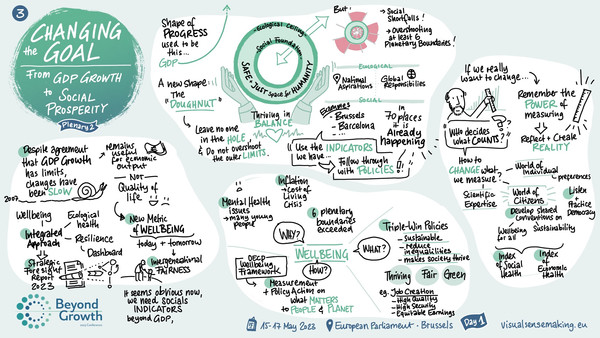 3
CHANGING
the GOAL
From GDP GROWTH
to SOCIAL
PROSPERITY
Plenary 2
Shape of
PROGRESS
used to be
this...
GDP
A new shape
The
"DOUGHNUT"
Leave no one
in the HOLE
& Do not overshoot
the outer LIMITS.
Ecological Ceiling
Social Foundation
SAFE + JUST Space for HUMANITY
Thriving in
BALANCE
But!
→ Social
Shortfalls!
→ Overshooting
at least 6
Planetary Boundaries!
ECOLOGICAL
National
Aspirations
Global
Responsibilities
SOCIAL
Examples
- Brussels
- Barcelona
...
In
70 places
is
Already
happening
Use the INDICATORS
we have...
Follow through
with POLICIES!
If we really
want to change...
"WHO decides
what COUNTS?"
Remember the
POWER of
measuring
Reflect + Create
REALITY
How to
CHANGE what
we measure?
World of
Individual
preferences
Scientific
Expertise
World of
Citizens
Develop shared
conventions on
Listen
+
Practice
Democracy
Wellbeing
for all
Sustainability
Index of
Social
Health
Index of
Economic
Health
Despite agreement
that GDP Growth
has limits,
changes have
been SLOW
remains
useful
for economic
output
NOT
Quality
of life
2007
Wellbeing
Ecological
health
Integrated
Approach
Resilience
→ New Metric
of WELLBEING
today + tomorrow
Dashboard
Strategic
Foresight
Report
2023
Intergenerational
FAIRNESS
It seems obvious now,
we need SOCIALS
INDICATORS
beyond GDP,
Beyond
Growth
Mental Health
Issues
→ many young
people
Inflation
→ Cost of
Living
Crisis
6 planetary
boundaries
exceeded
WHY?
WELLBEING
WHAT?
HOW?
OECD
Wellbeing
Framework
Measurement
+ Policy Action on
what MATTERS
to PEOPLE & PLANET
Triple-Win Policies
- sustainable
- reduce
inequalities
- makes society thrive
Thriving Fair Green
eg. Job Creation
- High Quality
- High Security
- Equitable Earnings
15-17 May 2023
European Parliament · Brussels
Day 1
visualsensemaking.eu